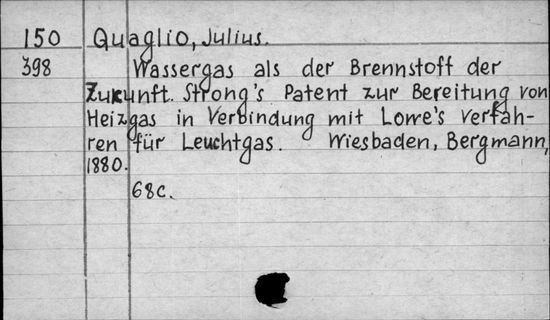 150 Quaglio, Julius.
398 Wassergas als der Brennstoff der
Zukunft. Strong's Patent zur Bereitung von
Heizgas in Verbindung mit Lowe's Verfah-
ren für Leuchtgas. Wiesbaden, Bergmann,
1880.
68c.